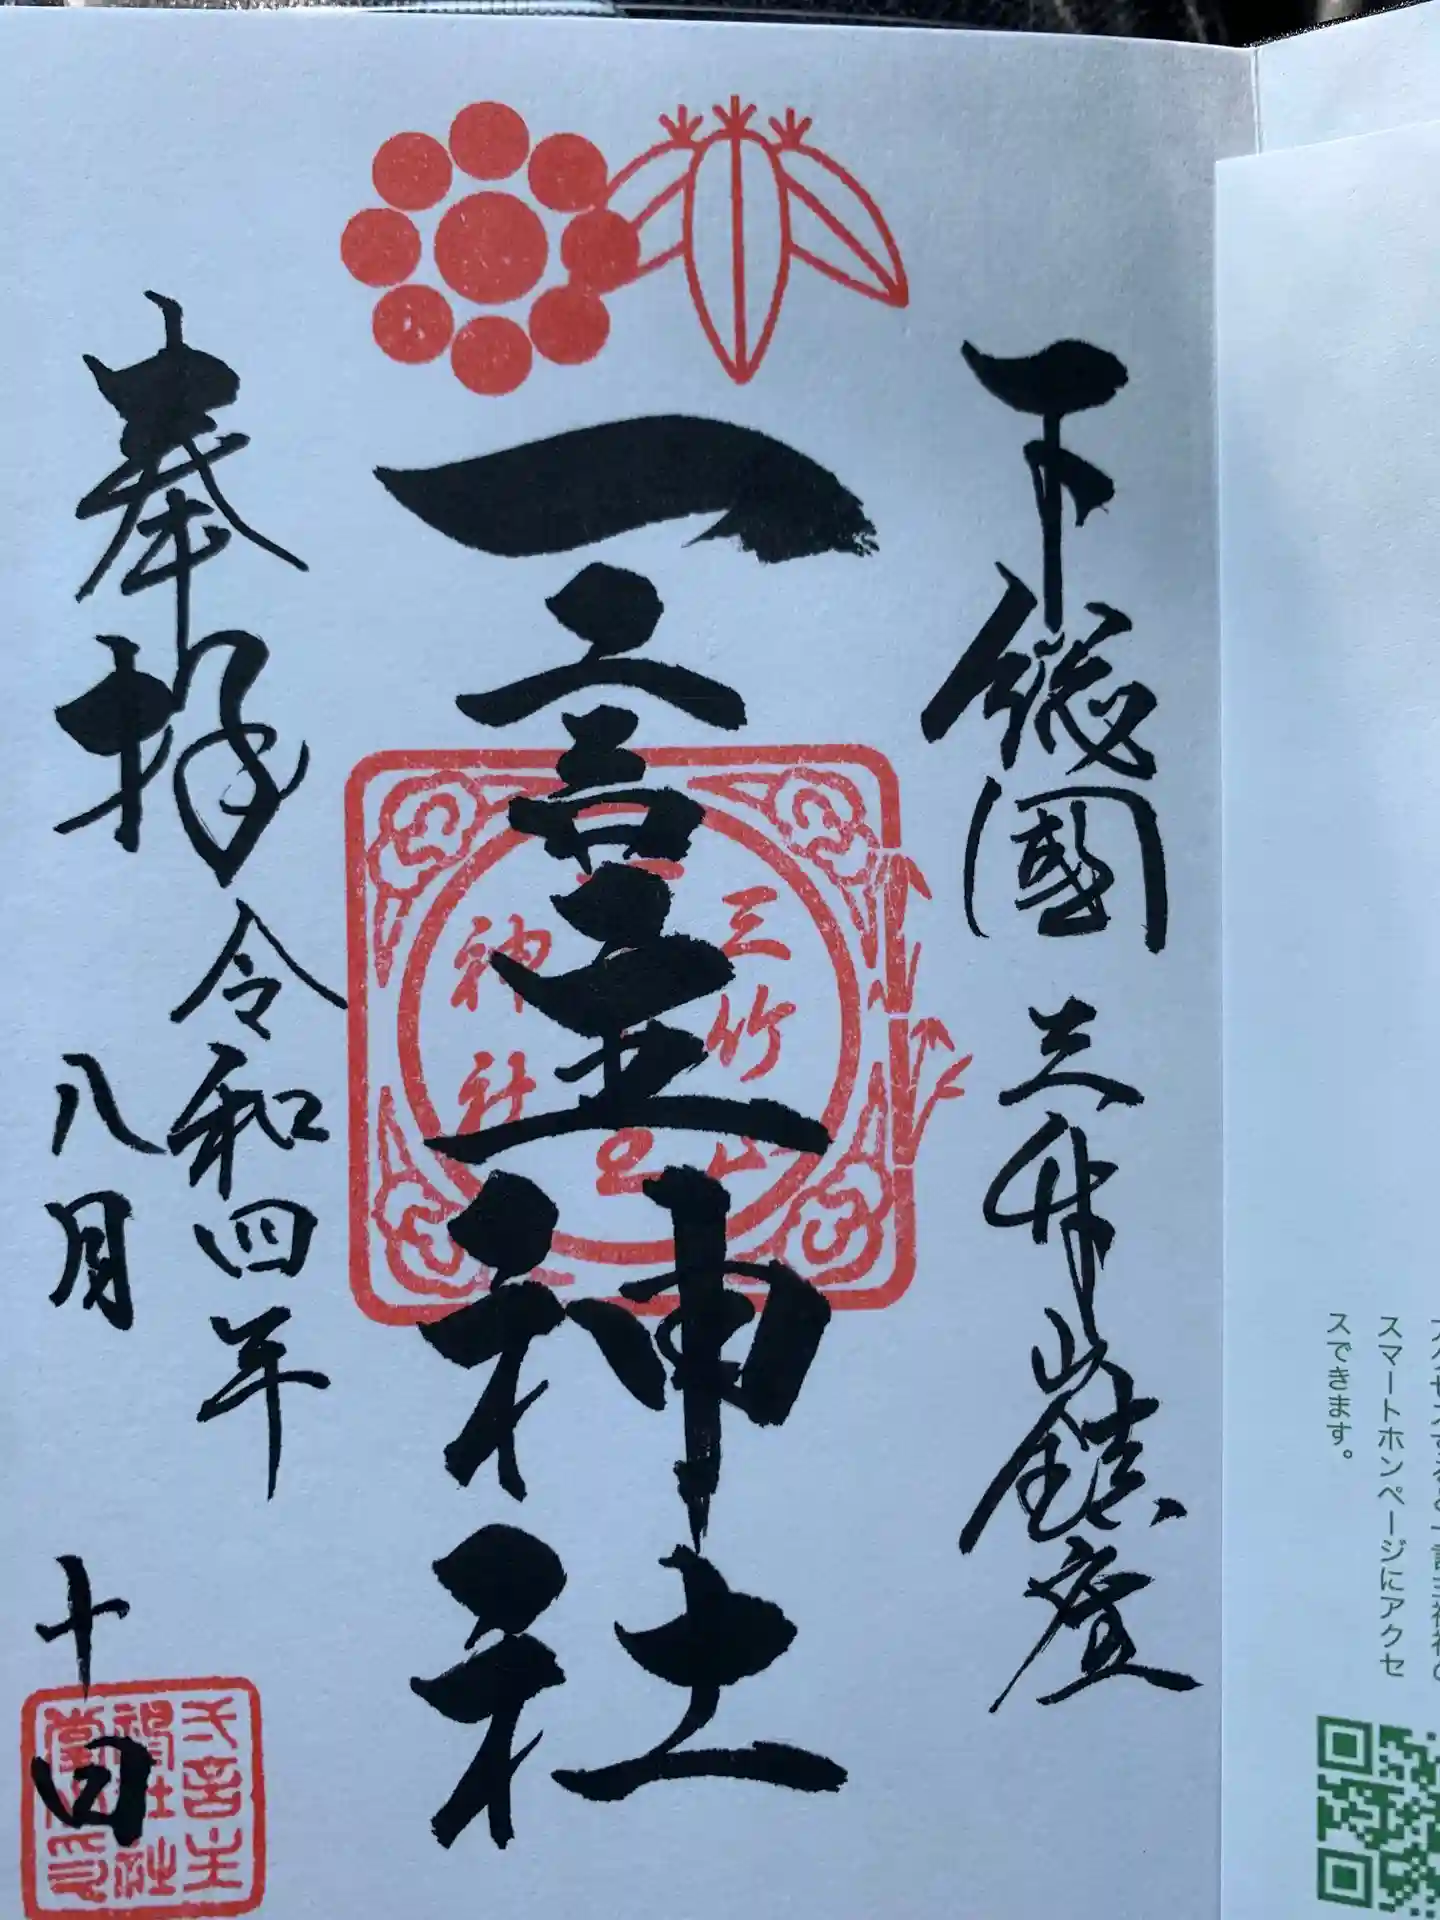 下総國 三竹山鎮座
一言主神社
三竹山
一言主
神社
奉拝 令和四年
八月 十四日
スマートホンページにアクセ
スできます。